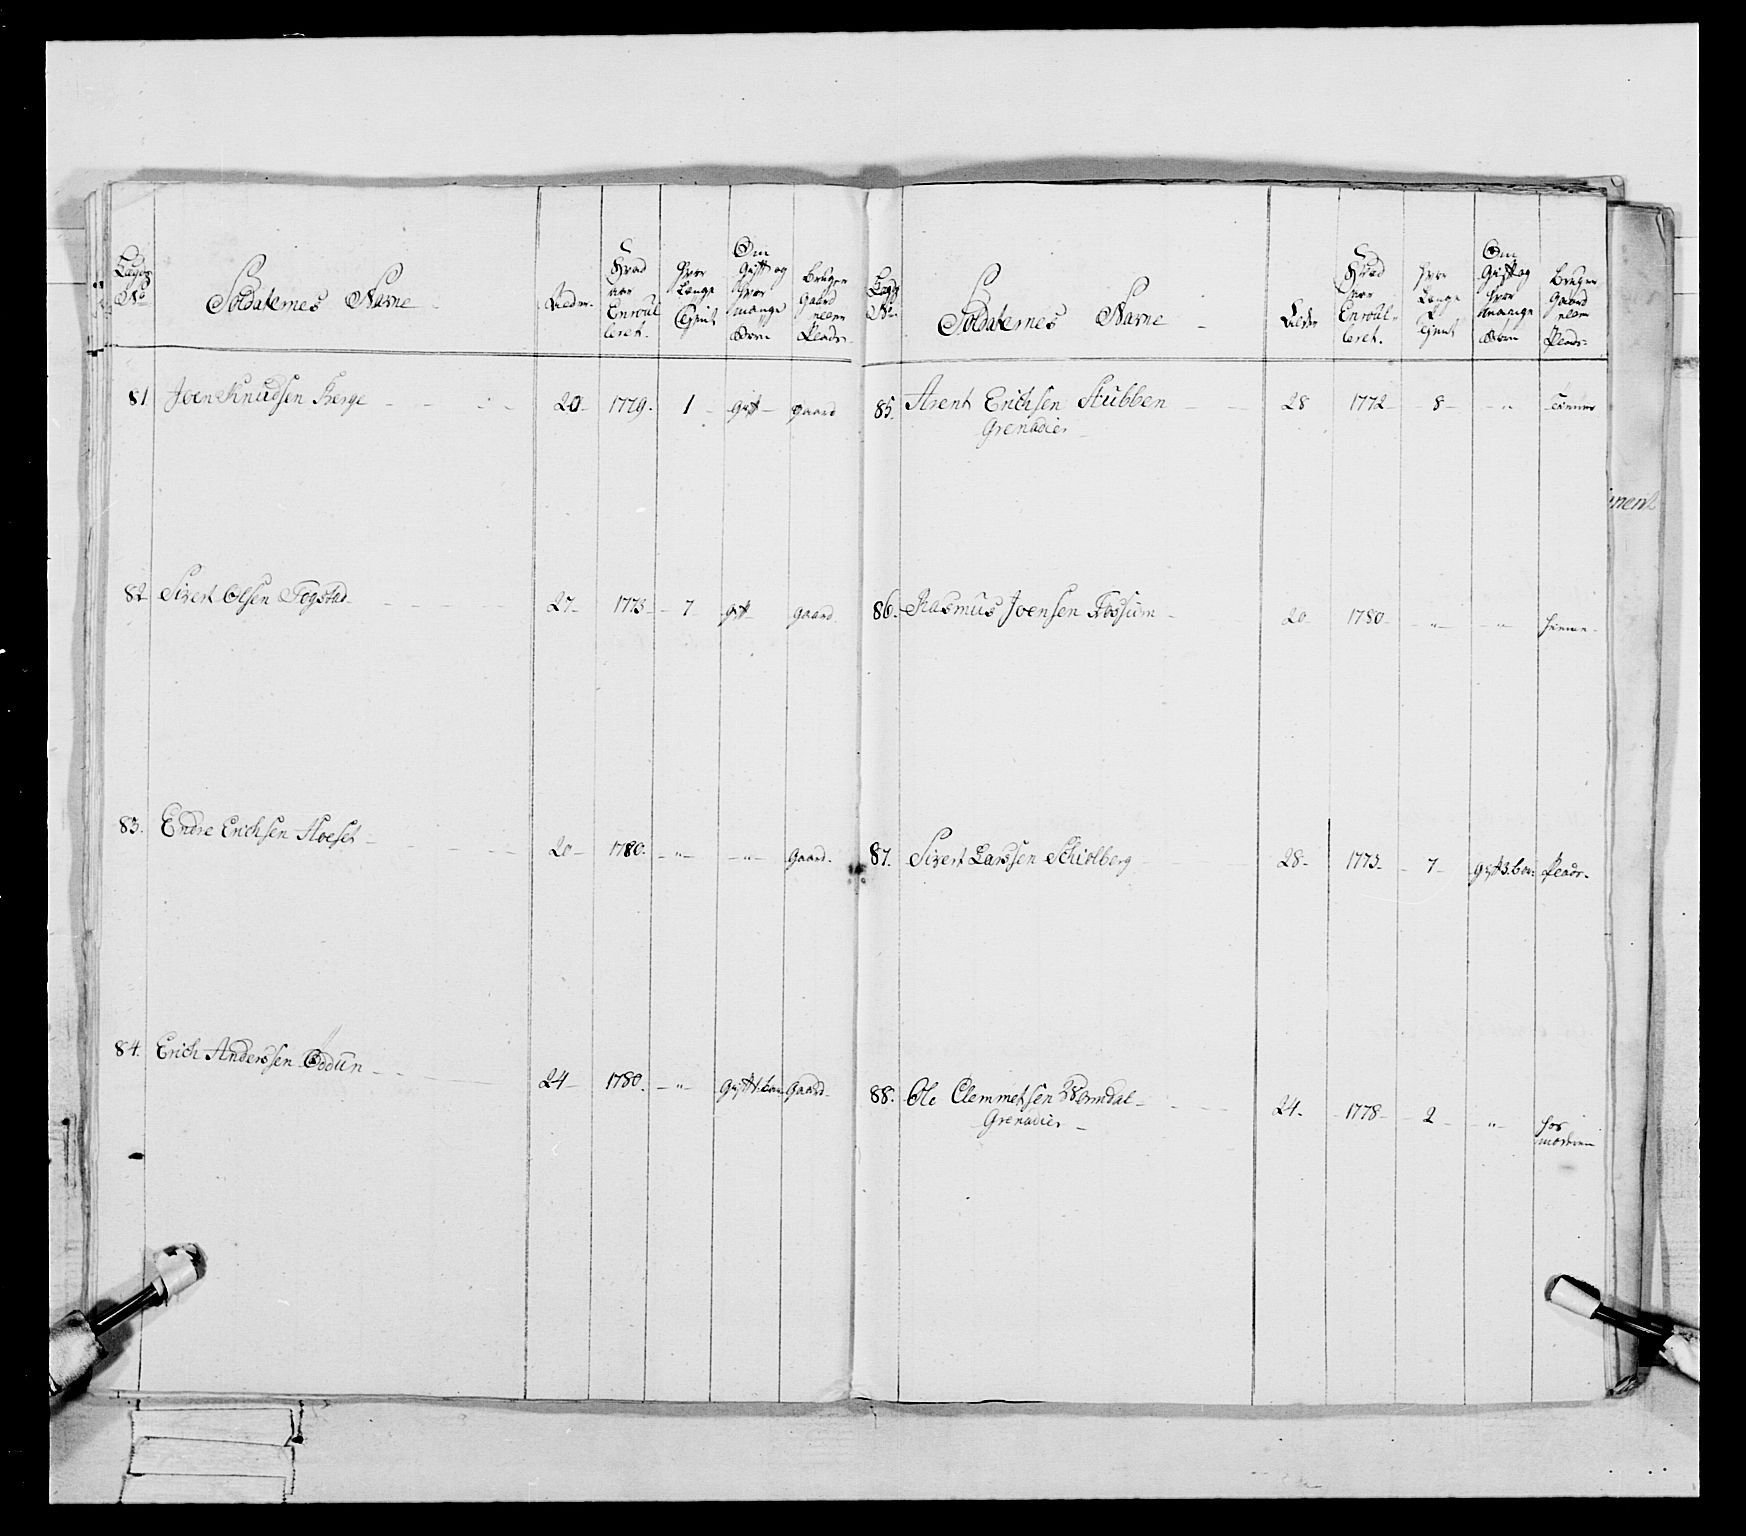 Lægds No
Soldaternes Navne
Alder.
Hvad aar Enroulleret.
Hvor Længe Tient
Om Gift og hvor mange Børn
Bruger Gaard eller Plads.
81. Joen Knudsen Berge 20 1779. 1 Gift Gaard
82 Sivert Olsen Togstad 27 1773 7 Gift Gaard.
83. Endre Erichsen Hoeset 20 1780. " " Gaard.
84. Erich Anderssen Ödün 24 1780. " Gift 1. barn Gaard.
Lægds No
Soldaternes Navne
Alder
Hvad aar Enroulleret.
Hvor Længe Tient
Om Gift og hvor mange Børn
Bruger Gaard eller Plads
85. Arent Erichsen Stubben 28 1772 8 " Tienner
Grenadier
86. Rasmus Joensen Fossum 20 1780 " " hiemme
87. Sivert Larssen Schiolberg 28 1773 7 Gift 3. bør: Plads.
88. Ole Clemmetsen 24 1778 2 " hos moderen
Grenadier
ment